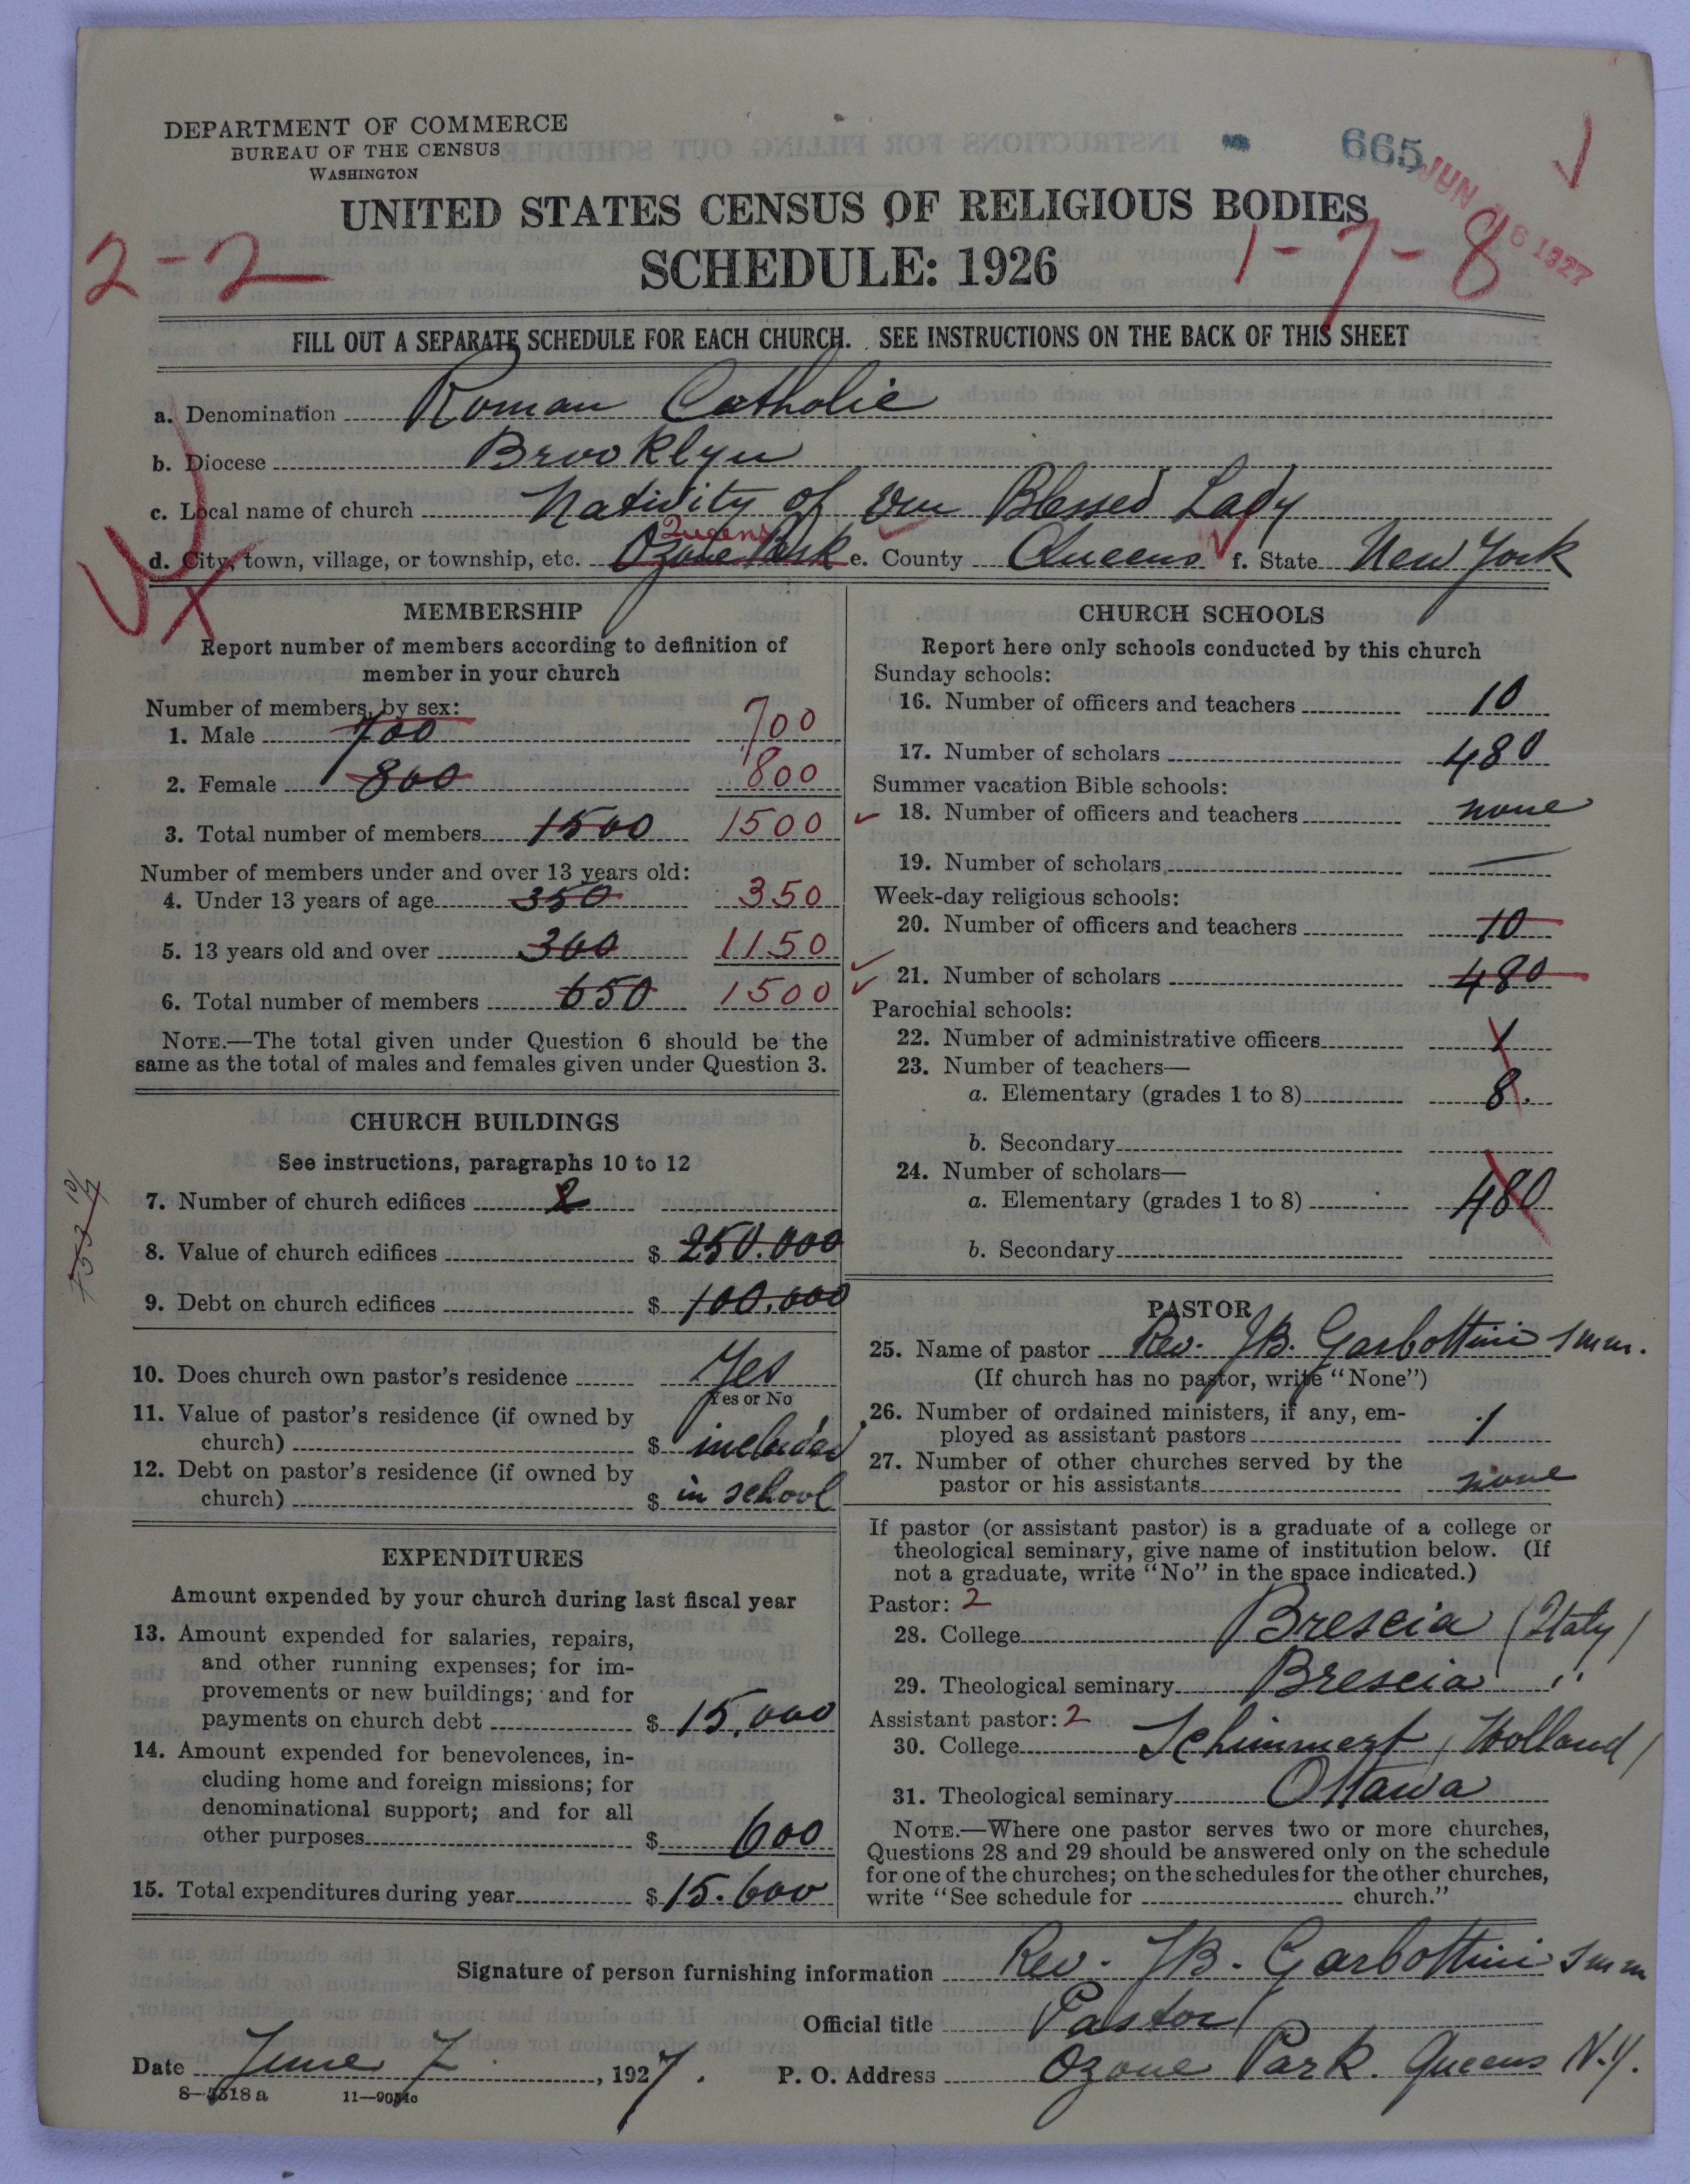 DEPARTMENT OF COMMERCE
BUREAU OF THE CENSUS
WASHINGTON
665
JUN 16 1927
UNITED STATES CENSUS OF RELIGIOUS BODIES
2-2
SCHEDULE: 1926
1-7-8
FILL OUT A SEPARATE SCHEDULE FOR EACH CHURCH. SEE INSTRUCTIONS ON THE BACK OF THIS SHEET
a. Denomination Roman Catholic
b. Diocese Brooklyn
c. Local name of church Nativity of Our Blessed Lady
Queens
d. City, town, village, or township, etc. Ozone Park e. County Queens f. State New York
MEMBERSHIP
Report number of members according to definition of
member in your church
Number of members, by sex:
1. Male 700 700
2. Female 800 800
3. Total number of members 1500 1500
Number of members under and over 13 years old:
4. Under 13 years of age 350 350
5. 13 years old and over 300 1150
6. Total number of members 650 1500
NOTE.—The total given under Question 6 should be the
same as the total of males and females given under Question 3.
CHURCH BUILDINGS
See instructions, paragraphs 10 to 12
7. Number of church edifices 2
8. Value of church edifices $ 250.000
9. Debt on church edifices $ 100.000
10. Does church own pastor's residence Yes
Yes or No
11. Value of pastor's residence (if owned by
church) $ included
12. Debt on pastor's residence (if owned by
church) $ in school
EXPENDITURES
Amount expended by your church during last fiscal year
13. Amount expended for salaries, repairs,
and other running expenses; for im-
provements or new buildings; and for
payments on church debt $ 15,000
14. Amount expended for benevolences, in-
cluding home and foreign missions; for
denominational support; and for all
other purposes $ 600
15. Total expenditures during year $ 15.600
CHURCH SCHOOLS
Report here only schools conducted by this church
Sunday schools:
16. Number of officers and teachers 10
17. Number of scholars 480
Summer vacation Bible schools:
18. Number of officers and teachers none
19. Number of scholars —
Week-day religious schools:
20. Number of officers and teachers 10
21. Number of scholars 480
Parochial schools:
22. Number of administrative officers 1
23. Number of teachers—
a. Elementary (grades 1 to 8) 8.
b. Secondary
24. Number of scholars—
a. Elementary (grades 1 to 8) 480
b. Secondary
PASTOR
25. Name of pastor Rev. JB. Garbottini smm.
(If church has no pastor, write "None")
26. Number of ordained ministers, if any, em-
ployed as assistant pastors 1
27. Number of other churches served by the
pastor or his assistants none
If pastor (or assistant pastor) is a graduate of a college or
theological seminary, give name of institution below. (If
not a graduate, write "No" in the space indicated.)
Pastor: 2
28. College Brescia (Italy)
29. Theological seminary Brescia "
Assistant pastor: 2
30. College Schimmert (Holland)
31. Theological seminary Ottawa
NOTE.—Where one pastor serves two or more churches,
Questions 28 and 29 should be answered only on the schedule
for one of the churches; on the schedules for the other churches,
write "See schedule for church."
Signature of person furnishing information Rev. JB. Garbottini smm
Official title Pastor
Date June 7. , 1927. P. O. Address Ozone Park. Queens N.Y.
8—5318a 11—9054c